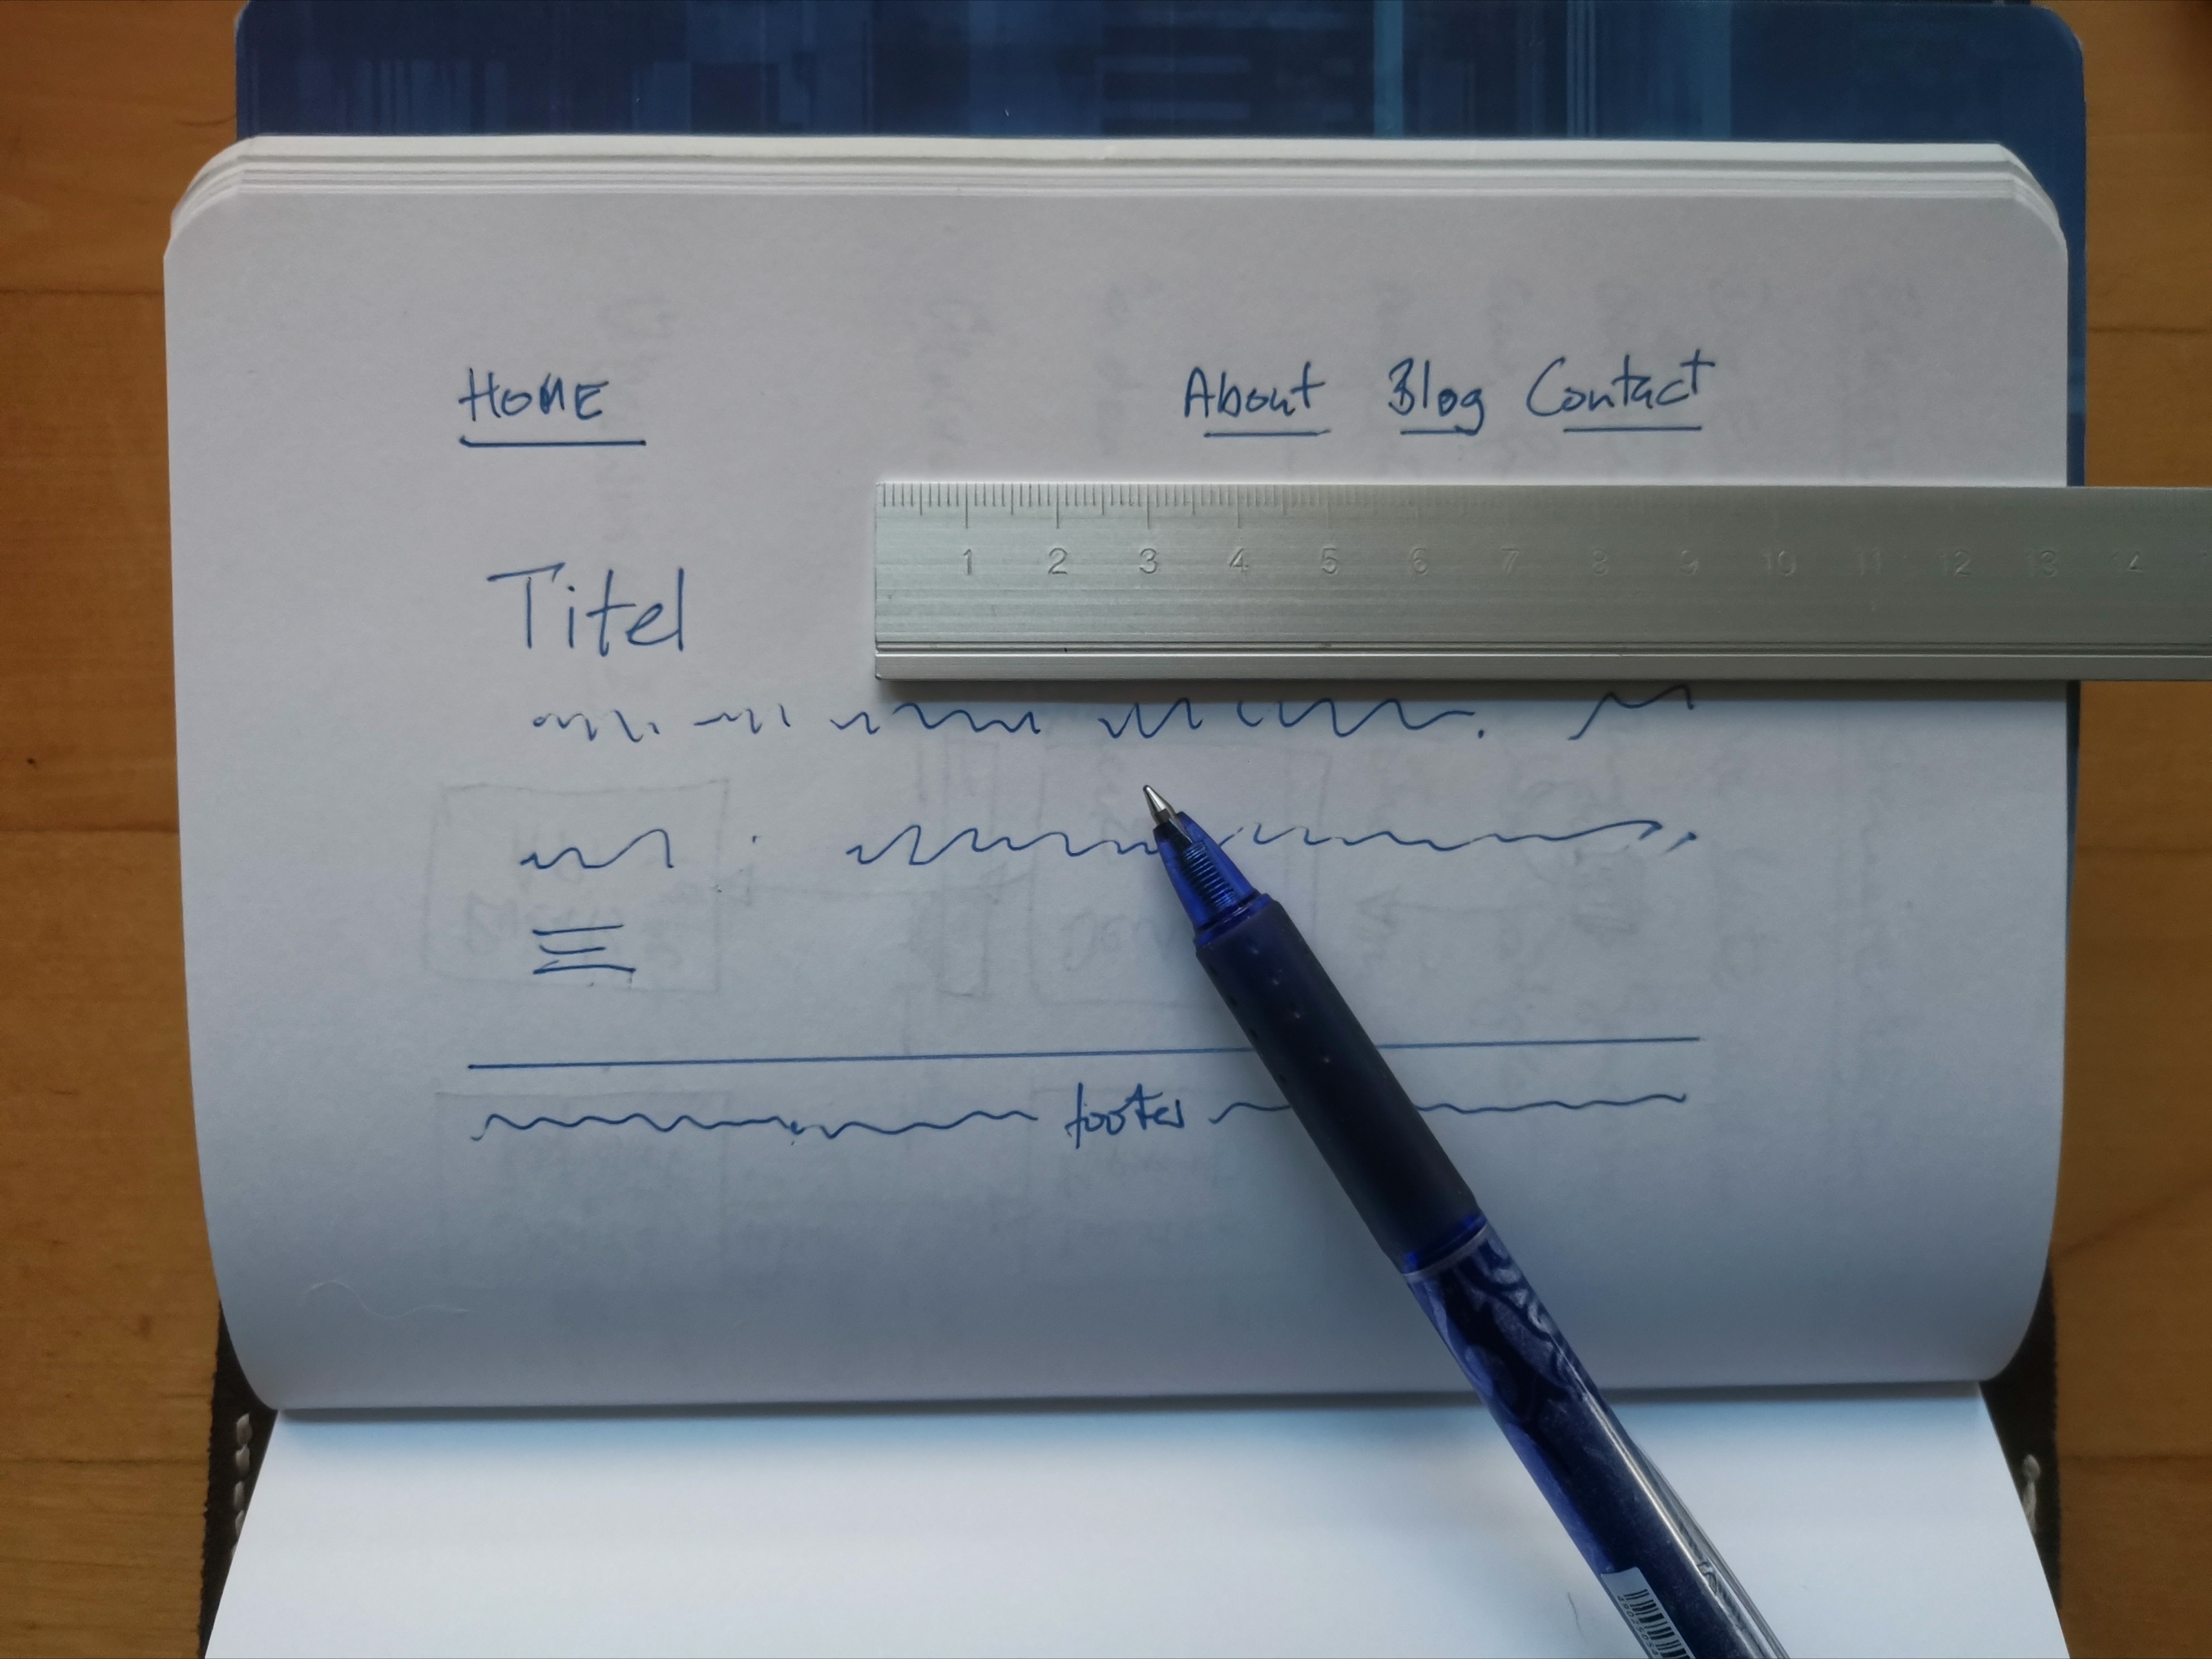 HOME About Blog Contact
1 2 3 4 5 6 7 8 9 10 11 12 13 14
Titel
footer